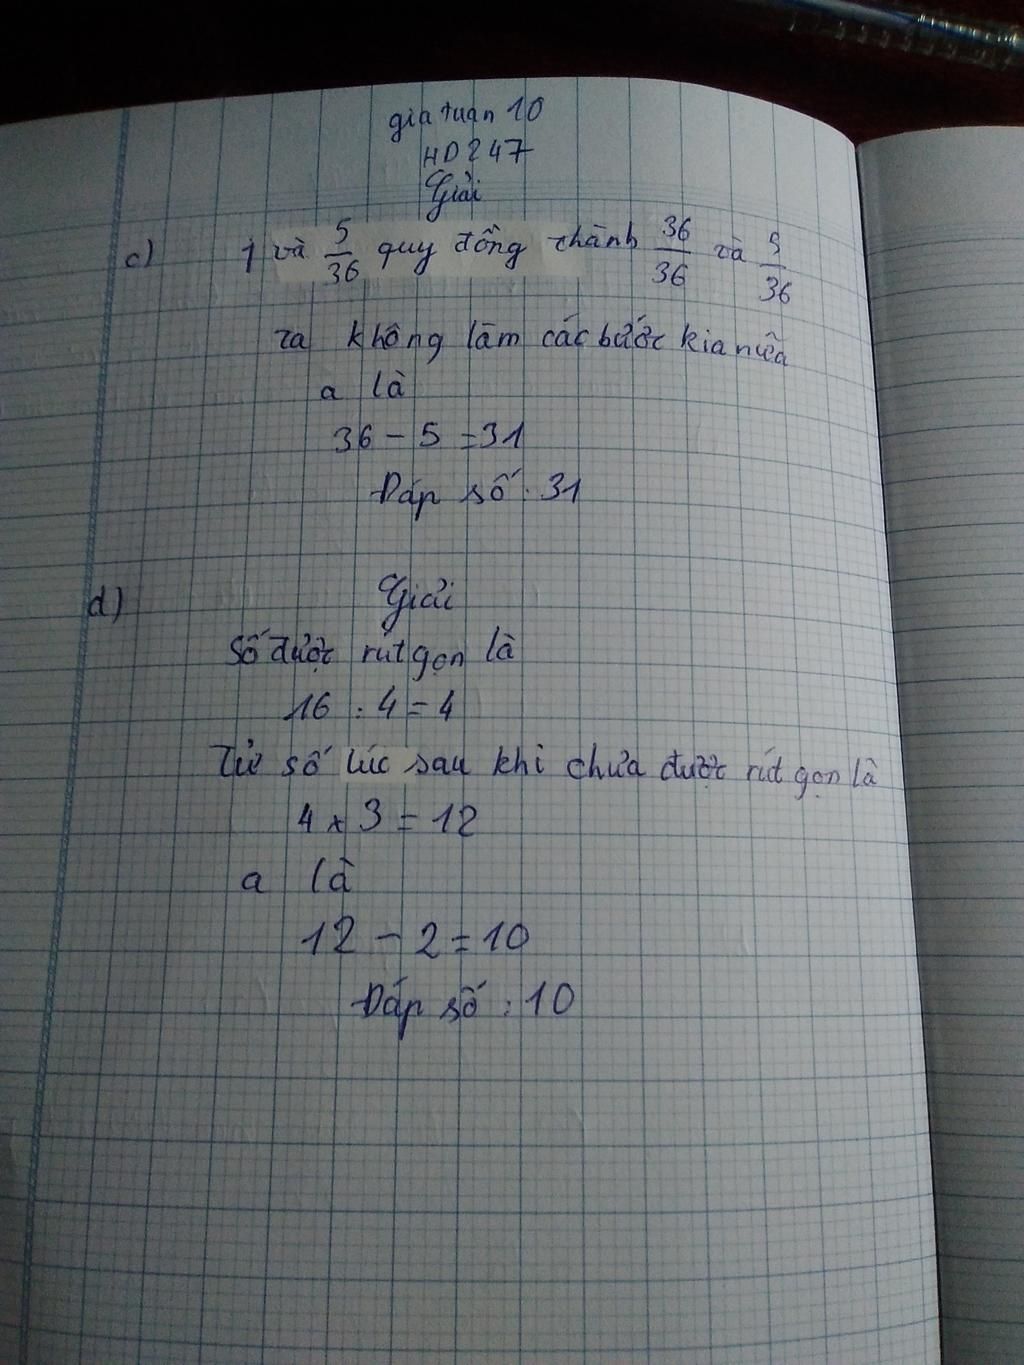 gia tuan 10
HD247
Giải
c) 1 và 5/36 quy đồng thành 36/36 và 5/36
ta không làm các bước kia nữa
a là
36 - 5 = 31
Đáp số: 31
d) Giải
Số được rút gọn là
16 : 4 = 4
Tử số lúc sau khi chưa được rút gọn là
4 x 3 = 12
a là
12 - 2 = 10
Đáp số: 10